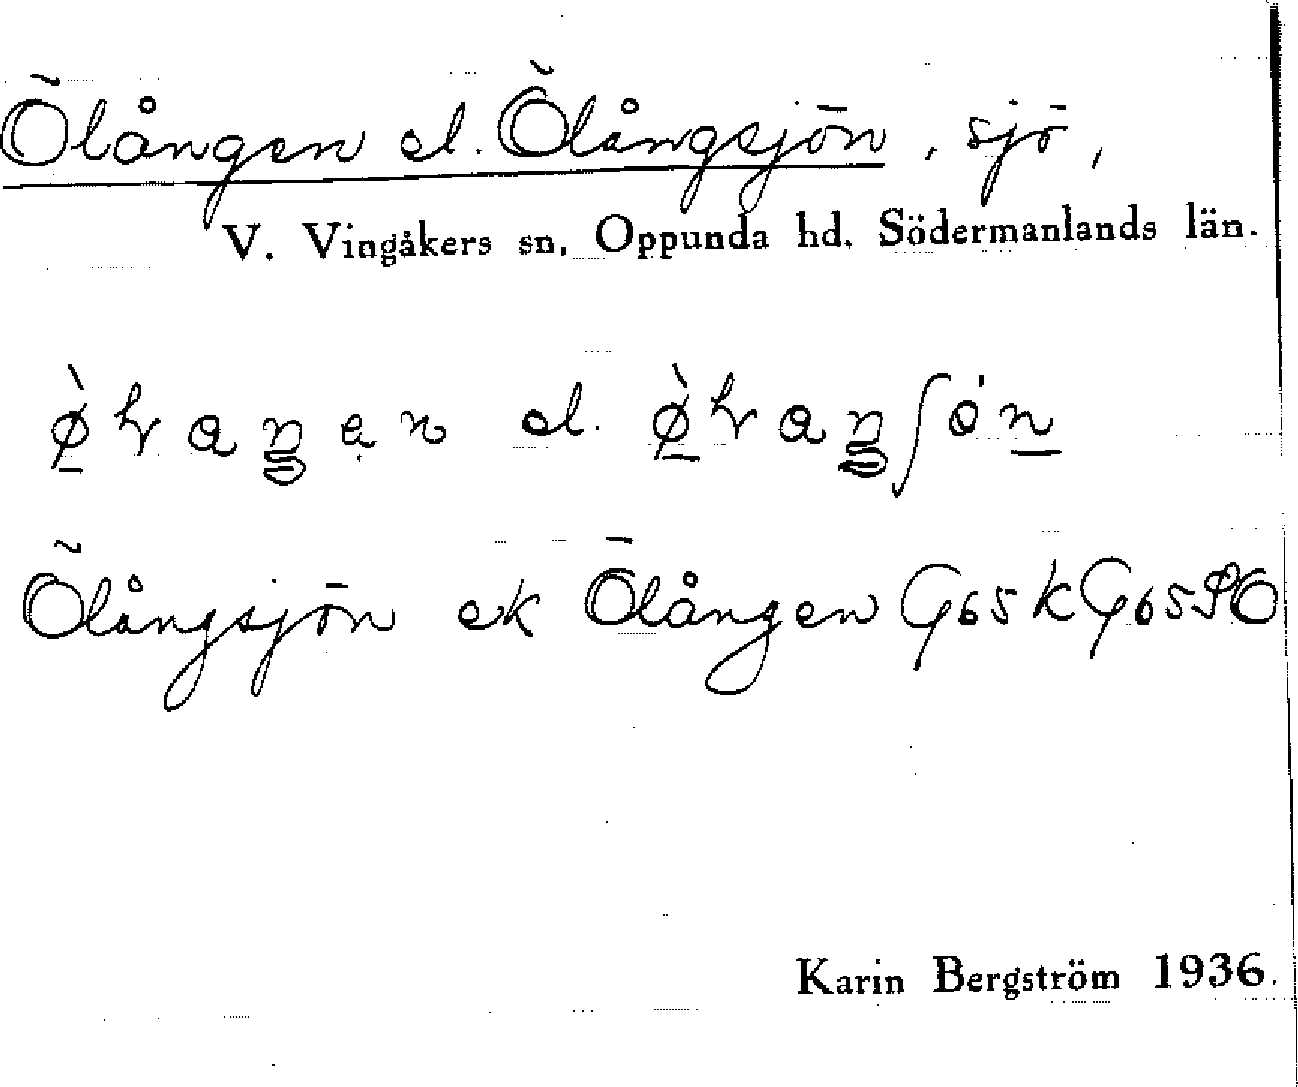 Ölången el. Ölångsjön, sjö,
V. Vingåkers sn, Oppunda hd. Södermanlands län.
el.
Ölångsjön ek Ölången G65 k G65 SO
Karin Bergström 1936.